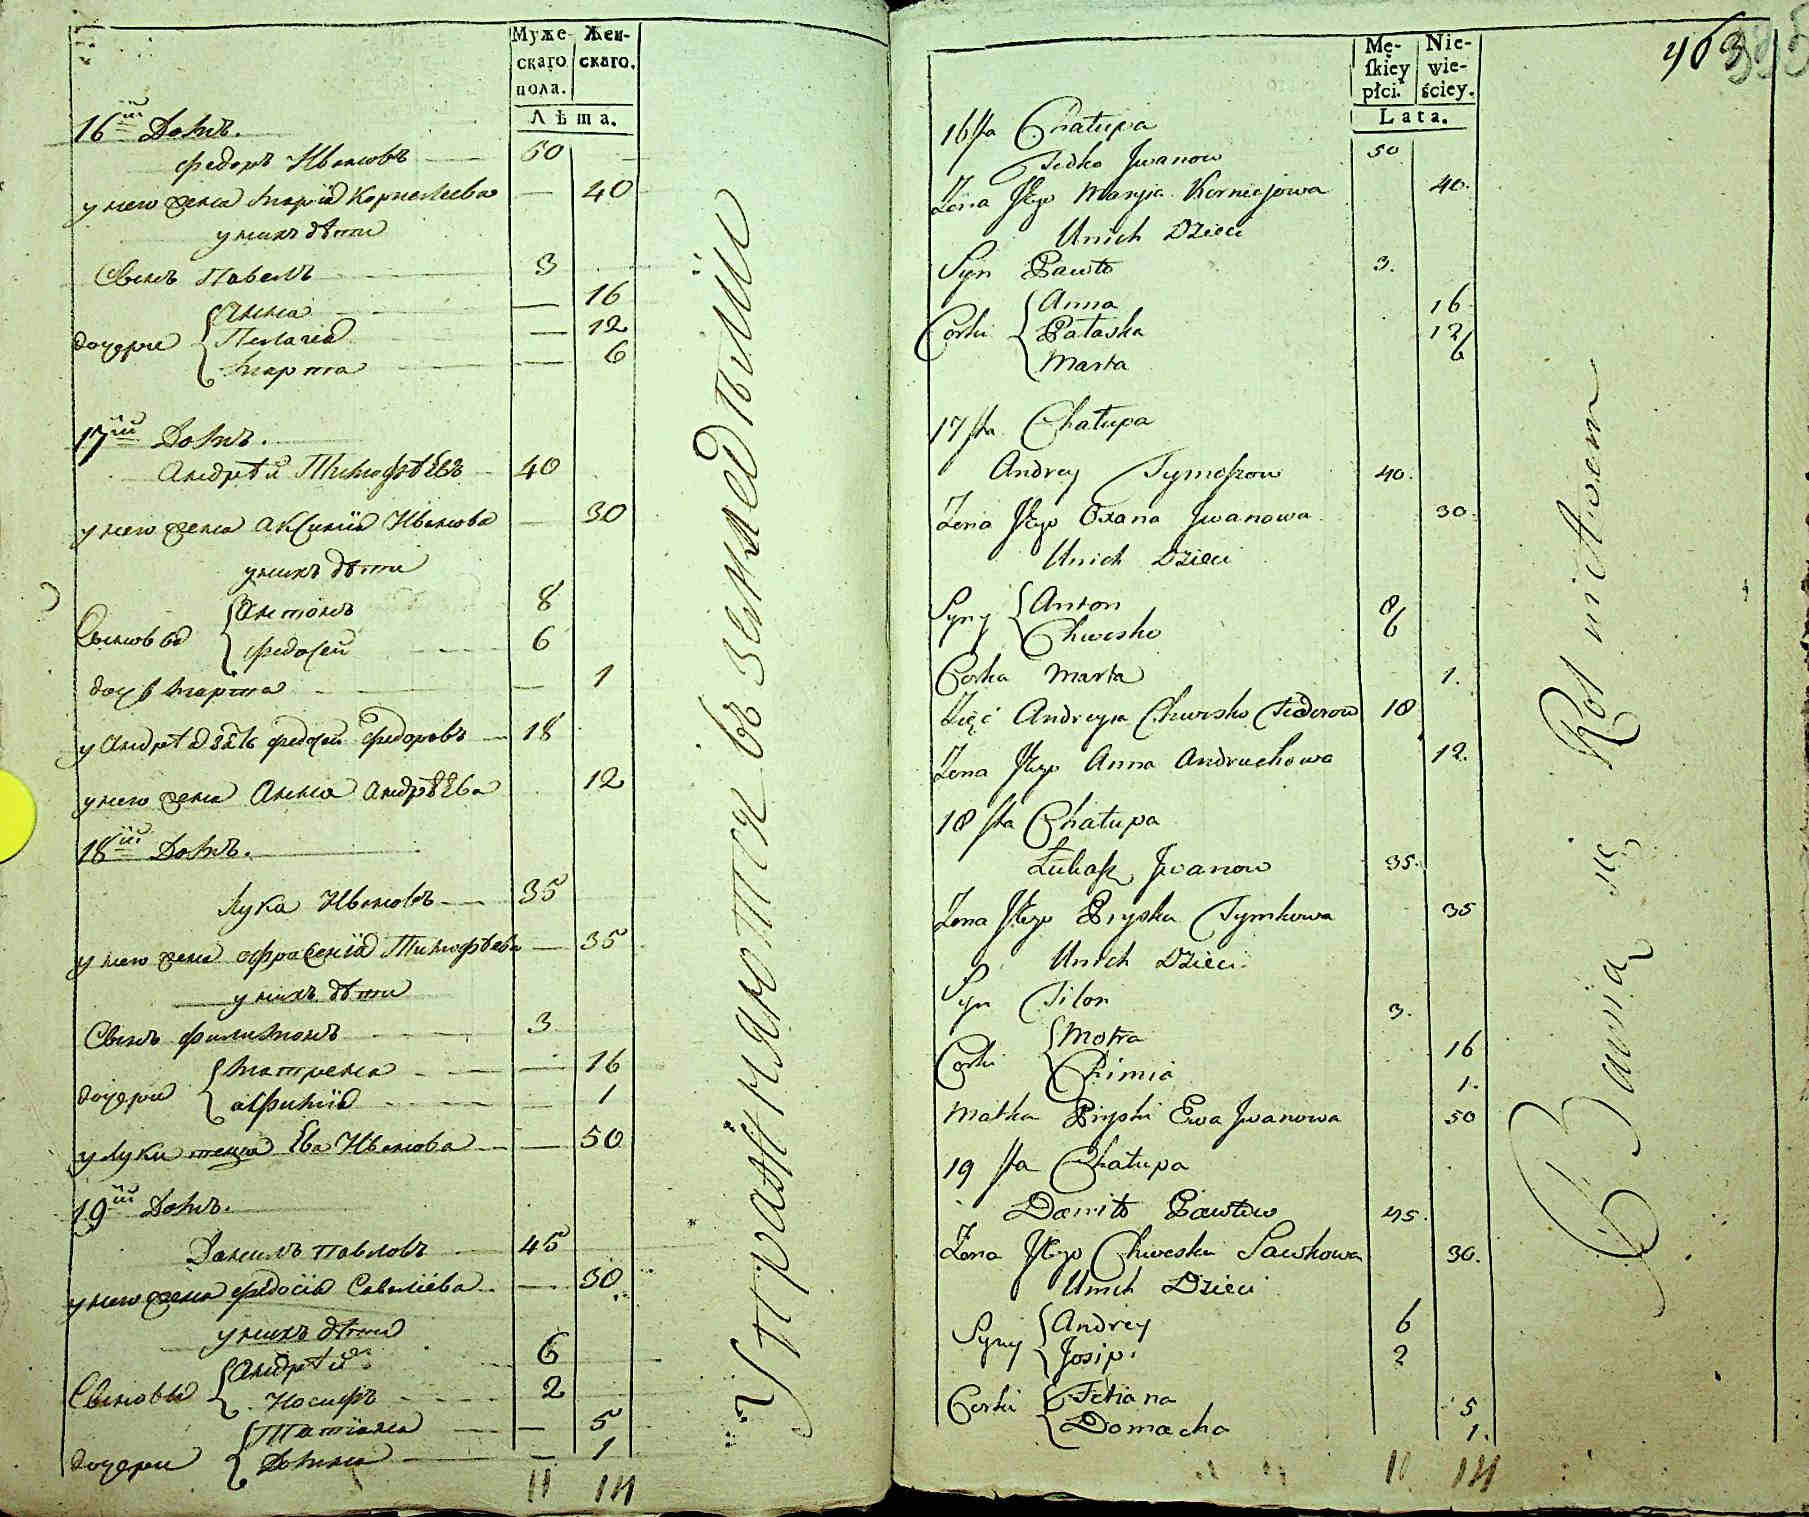 Муже-
скаго
пола.
Жен-
скаго.
Лѣта.
16й Домъ.
Федоръ Ивановъ 50
у него жена Марiя Корнелѣева — 40
у нихъ дѣти
Сынъ Павелъ 3
дочери Анна — 16
Пелагея — 12
Марта — 6
17й Домъ.
Андрѣй Тимофѣевъ 40
у него жена Аксинiя Иванова — 30
у нихъ дѣти
Сыновья Антонъ 8
Федосей 6
дочь Марта — 1
у Андрѣя зять Федосей Федоровъ 18
у него жена Анна Андрѣева 12
18й Домъ.
Лука Ивановъ 35
у него жена Афрасенiя Тимофѣева — 35
у нихъ дѣти
Сынъ Филимонъ 3
дочери Матрена — 16
Афимiя — 1
у Луки теща Ева Иванова — 50
19й Домъ.
Данилъ Павловъ 45
у него жена Федосiя Савелiева — 30
у нихъ дѣти
Сыновья Андрѣй 6
Иосифъ 2
дочери Татiана — 5
Домна — 1
11 14
Упражняются въ земледѣлiи
463
Mę-
ſkiey
płci.
Nie-
wie-
ściey.
Lata.
16sta Chałupa
Fedko Jwanow 50
Zona Jego Marya Korniejowa 40.
Unich Dzieci
Syn Pawło 3.
Corki Anna 16
Pałaska 12
Marta 6
17sta Chałupa
Andrey Tymoszow 40.
Zona Jego Oxana Jwanowa 30.
Unich Dzieci
Syny Anton 8
Chwesko 6
Corka Marta 1.
Zięć Andreya Chwesko Fedorow 18
Zona Jego Anna Andruchowa 12.
18sta Chałupa
Łukasz Jwanow 35.
Zona Jego Pryska Tymkowa 35
Unich Dzieci
Syn Filon 3.
Corki Motra 16
Chimia 1.
Matka Pryski Ewa Jwanowa 50
19sta Chałupa
Daniło Pawłow 45.
Zona Jego Chweska Sawkowa 30.
Unich Dzieci
Syny Andrey 6
Josip 2
Corki Tetiana 5
Domacha 1.
11 14
Bawią się Rolnictwem